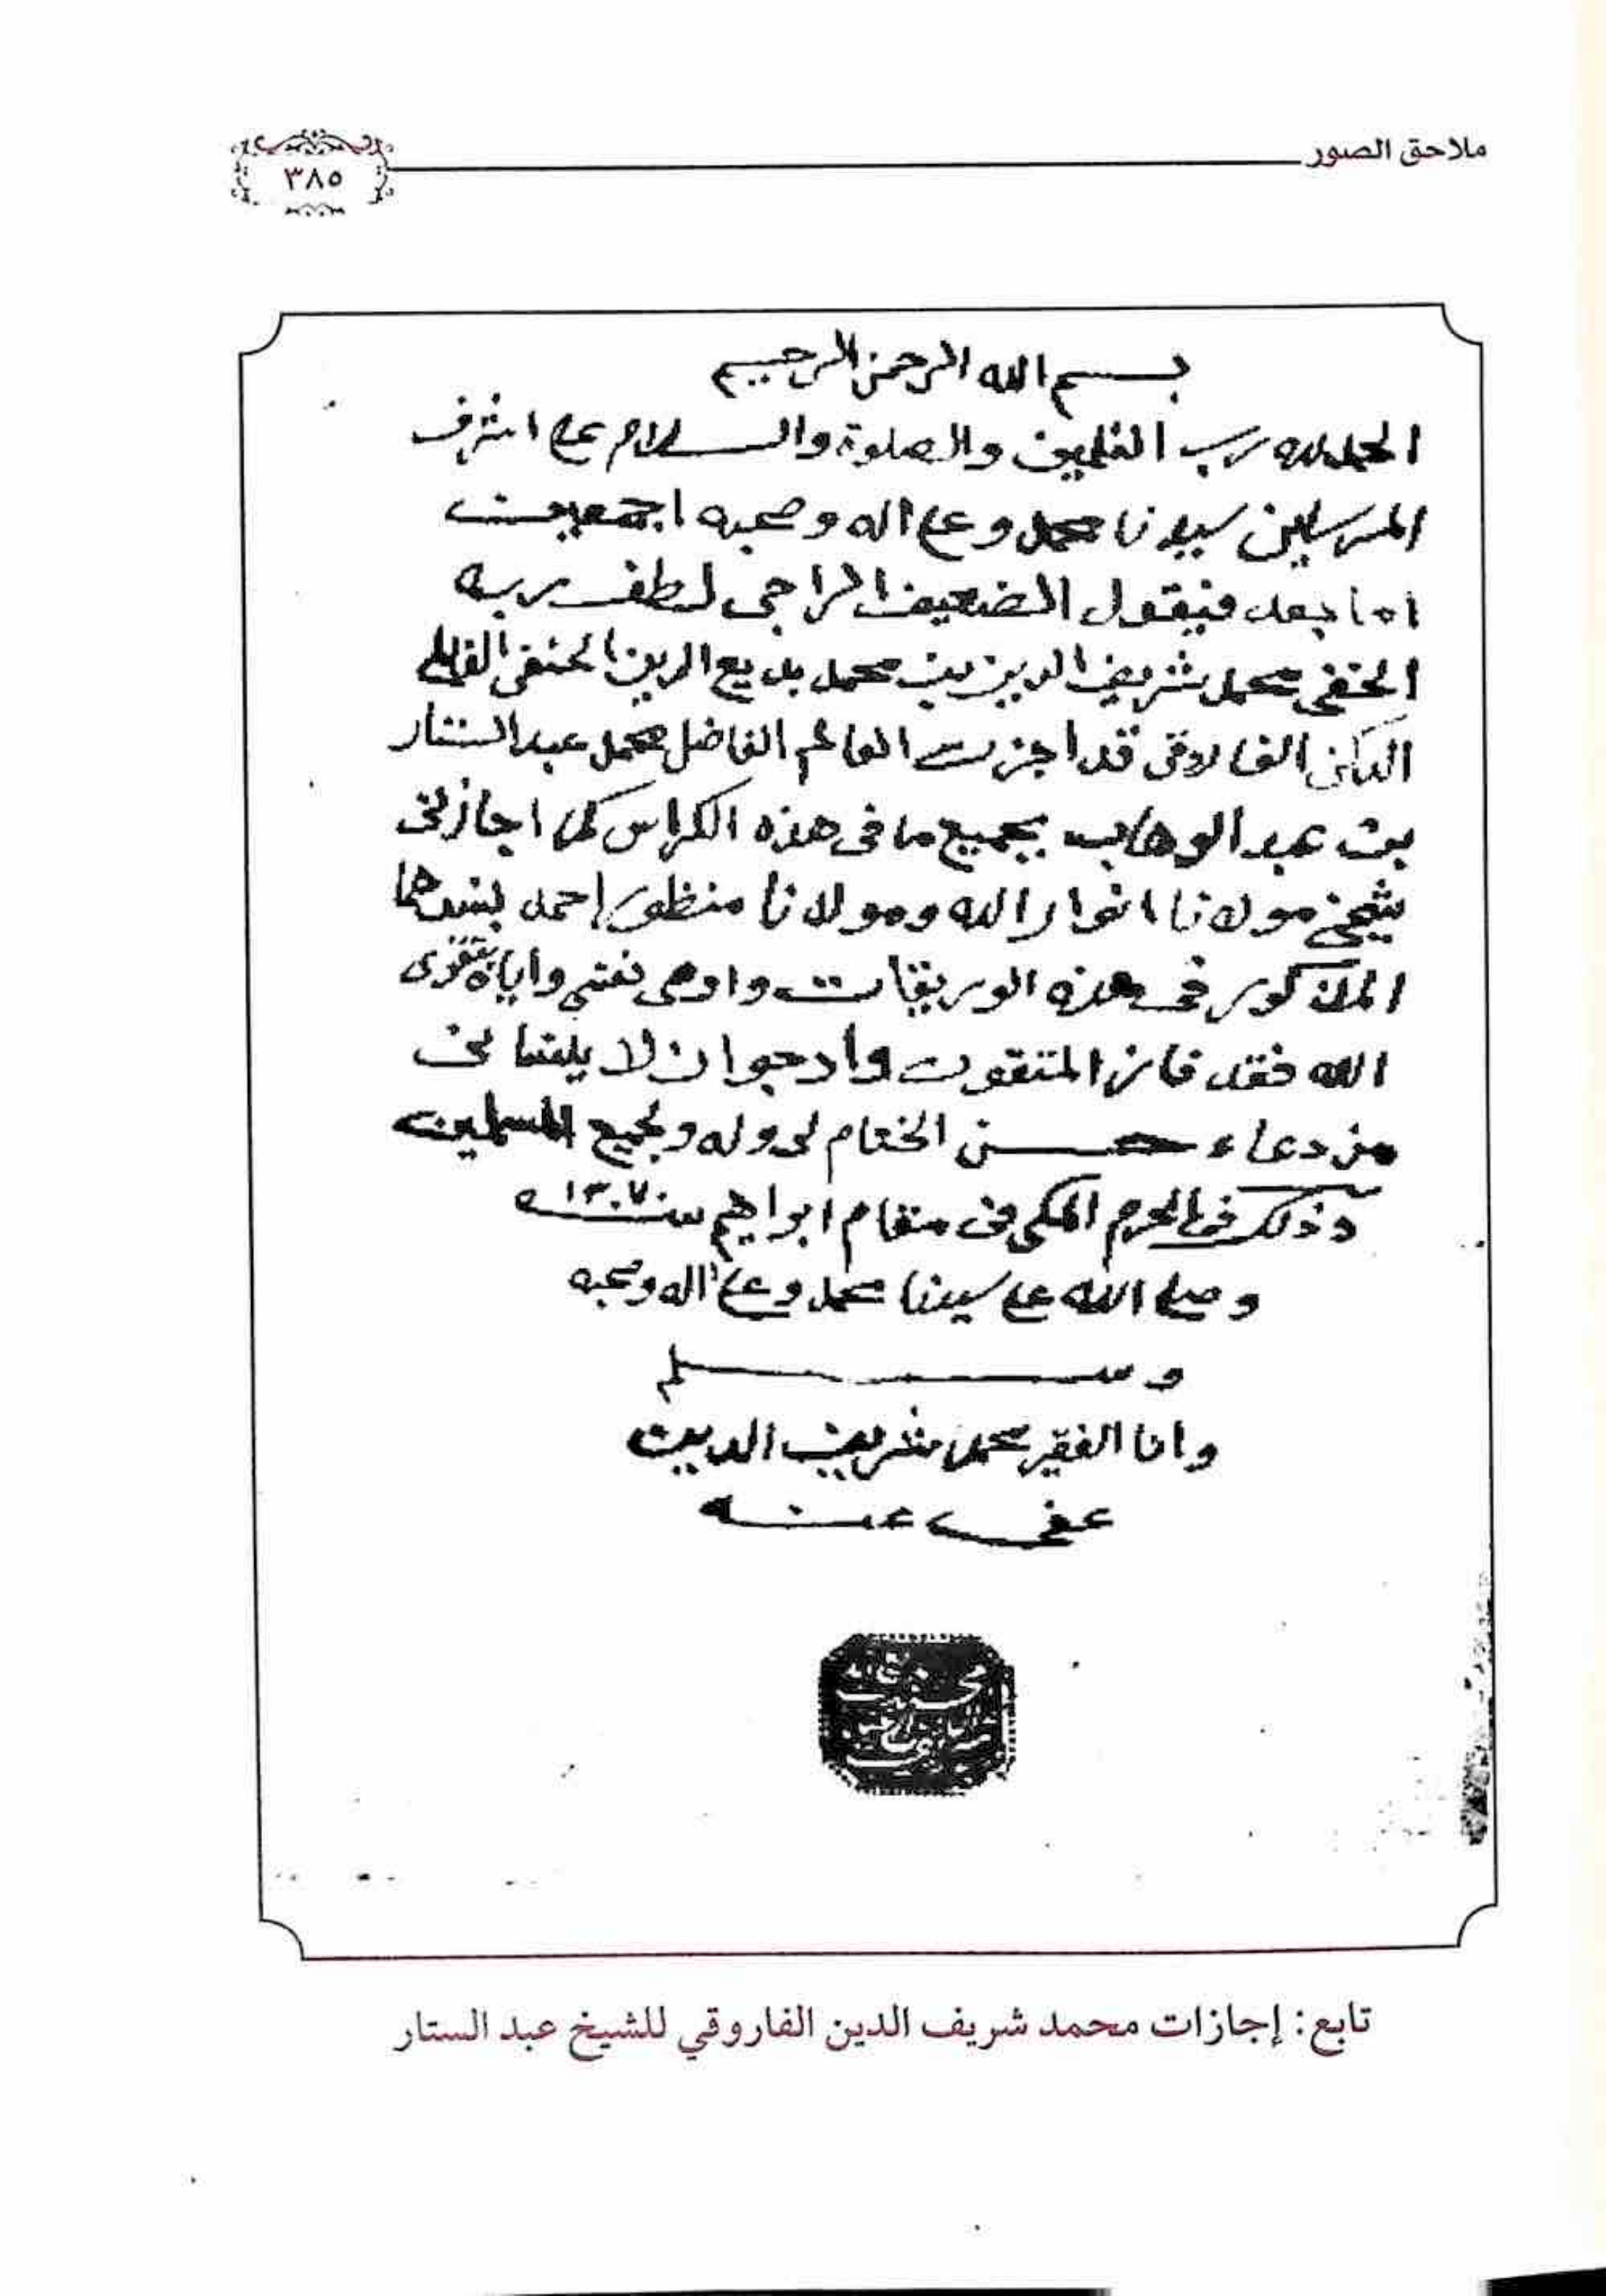 ملاحق الصور
٣٨٥
بسم الله الرحمن الرحيم
الحمد لله رب العلمين والصلوة والسلام على اشرف
المرسلين سيدنا محمد وعلى اله وصحبه اجمعين
اما بعد فيقول الضعيف الراجى لطف ربه
الخفى محمد شريف الدين بن محمد بديع الدين الحنفى
الفاروقى قد اجزت العالم الفاضل محمد عبدالستار
بن عبد الوهاب بجميع ما فى هذه الكراس كما اجازنى
شيخى مولانا انوار الله ومولانا منظور احمد بسندهما
المذكور فى هذه الوريقات واوصى نفسى واياه بتقوى
الله فقد فاز المتقون وارجوا ان لا ينسانى
من دعاء حسن الختام لى وله ولجميع المسلمين
وذلك فى الحرم المكى فى مقام ابراهيم سنة ١٣٠٧ه
وصلى الله على سيدنا محمد وعلى اله وصحبه
وسلم
وانا الفقير محمد شريف الدين
عفى عنه
تابع: إجازات محمد شريف الدين الفاروقي للشيخ عبد الستار